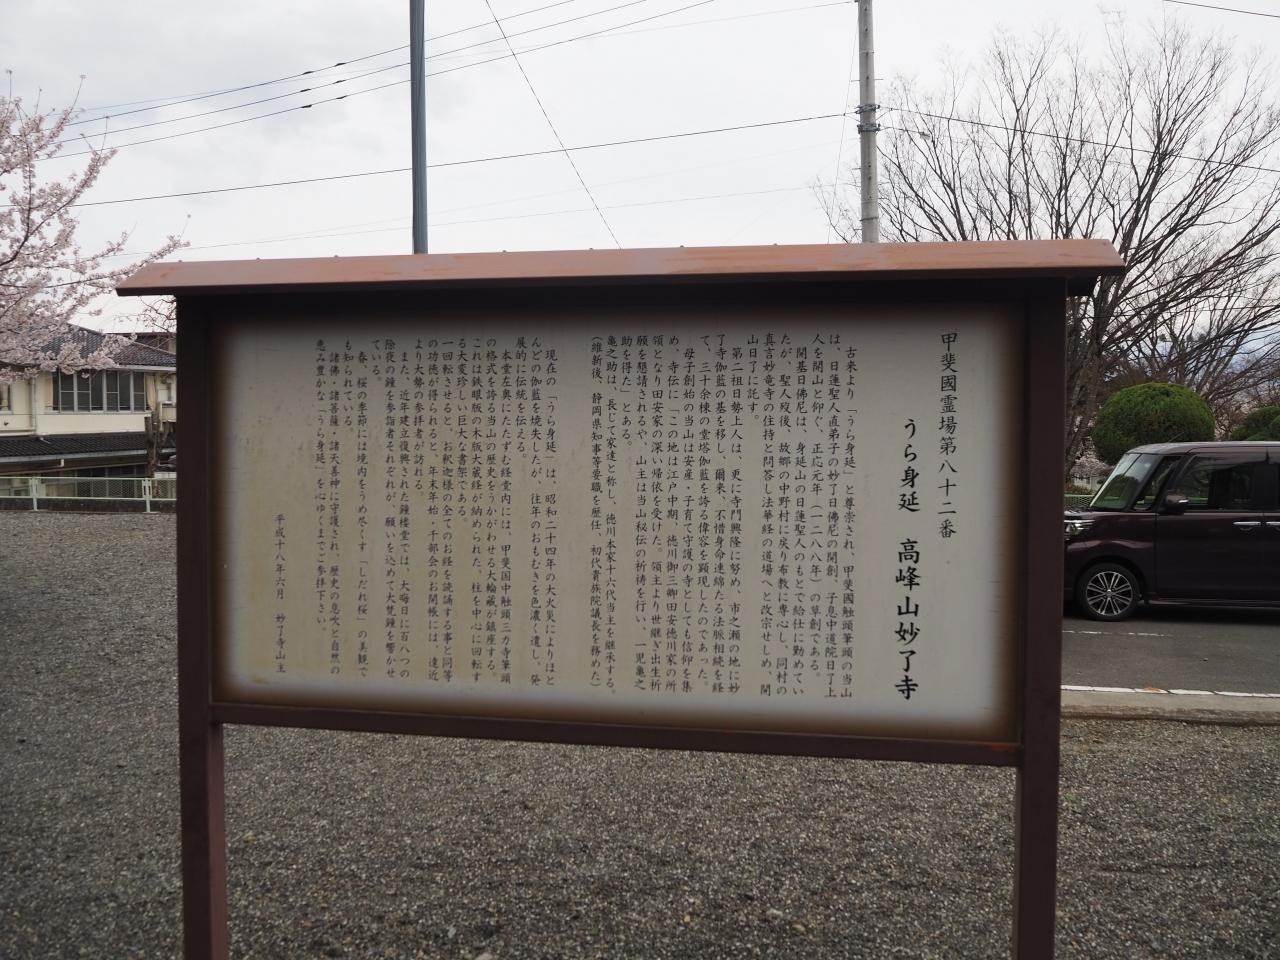 甲斐國霊場第八十二番
うら身延 高峰山妙了寺
古来より「うら身延」と尊崇され、甲斐國触頭筆頭の当山
は、日蓮聖人直弟子の妙了日佛尼の開創、子息中道院日了上
人を開山と仰ぐ、正応元年（一二八八年）の草創である。
開基日佛尼は、身延山の日蓮聖人のもとで給仕に勤めてい
たが、聖人歿後、故郷の中野村に戻り布教に専心し、同村の
真言妙竜寺の住持と問答し法華経の道場へと改宗せしめ、開
山日了に託す。
第二祖日勢上人は、更に寺門興隆に努め、市之瀬の地に妙
了寺伽藍の基を移し、爾来、不惜身命連綿たる法脈相続を経
て、三十余棟の堂塔伽藍を誇る偉容を顕現したのであった。
母子創始の当山は安産・子育て守護の寺としても信仰を集
め、寺伝に「この地は江戸中期、徳川御三卿田安徳川家の所
領となり田安家の深い帰依を受けた。領主より世継ぎ出生祈
願を懇請されるや、山主は当山秘伝の祈祷を行い、一児亀之
助を得た」とある。
亀之助は、長じて家達と称し、徳川本家十六代当主を継承する。
（維新後、静岡県知事等要職を歴任、初代貴族院議長を務めた）
現在の「うら身延」は、昭和二十四年の大火災によりほと
んどの伽藍を焼失したが、往年のおもむきを色濃く遺し、発
展的に伝統を伝える。
本堂左奥にたたずむ経堂内には、甲斐国中触頭三カ寺筆頭
の格式を誇る当山の歴史をうかがわせる大輪蔵が鎮座する。
これは鉄眼版の木版大蔵経が納められた、柱を中心に回転す
る大変珍しい巨大な書架である。
一回転させると、お釈迦様の全てのお経を読誦する事と同等
の功徳が得られると、年末年始・千部会のお開帳には、遠近
より大勢の参拝者が訪れる。
また、近年建立復興された鐘楼堂では、大晦日に百八つの
除夜の鐘を参詣者それぞれが、願いを込めて大梵鐘を響かせ
ている。
春、桜の季節には境内をうめ尽くす「しだれ桜」の美観で
も知られている。
諸佛・諸菩薩・諸天善神に守護され、歴史の息吹と自然の
恵み豊かな「うら身延」を心ゆくまでご参拝下さい。
平成十八年六月 妙了寺山主